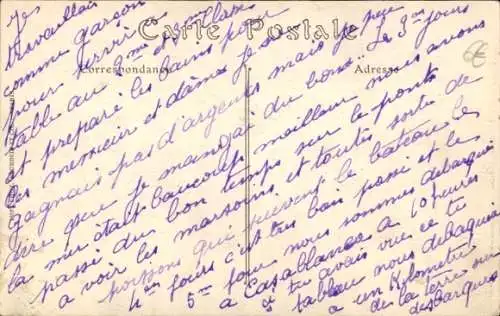 Carte Postale
Correspondance
Adresse
Jes
travaillais
comme garçon
pour servir
table au 2me et 3me classe
et preparé les bains pour
les messieur et dames je
gagnais pas d'argents mais je peu
dire que je mangai du bons. Le 3me jours
la mer était beaucoup meilleur nous avons
passé du bon temps sur le ponts
a voir les marsoins et toutes sorte de
poissons que suivent le bateau le
4me jours c'est très bien passé et le
5me jour nous sommes debarqué
a Casablanca a 10 heures
si tu avais vue ce
tableau nous debarqué
a un Kolometre
de la terre sur
des barques